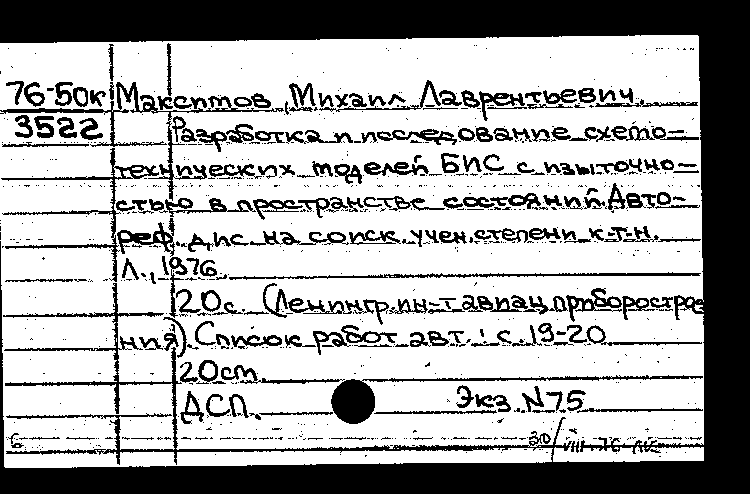 76-50к Максимов, Михаил Лаврентьевич.
3522 Разработка и исследование схемо-
технических моделей БИС с избыточно-
стью в пространстве состояний. Авто-
реф. дис. на соиск. учен. степени к.т.н.
Л., 1976.
20с. (Ленингр. ин-т авиац. приборострое
ния). Список работ авт.: с. 19-20
20см.
ДСП. Экз. N75
6 30/VIII-76